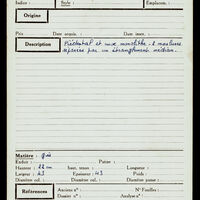 Index : Style : Emplacem. :
Origine
Prix Date acquis. : Date insert. :
Description Piédestal et vase monolithe. 2 moulures
séparées par un étranglement médian.
Matière : grès
Enduit : Patine :
Hauteur : 22 cm haut. tenon : Longueur :
Largeur : 43 Epaisseur : 43 Poids :
Diamètre col. : Diamètre panse :
Références Anciens n° : N° Feuilles :
Dossier n° : Analyse n° :